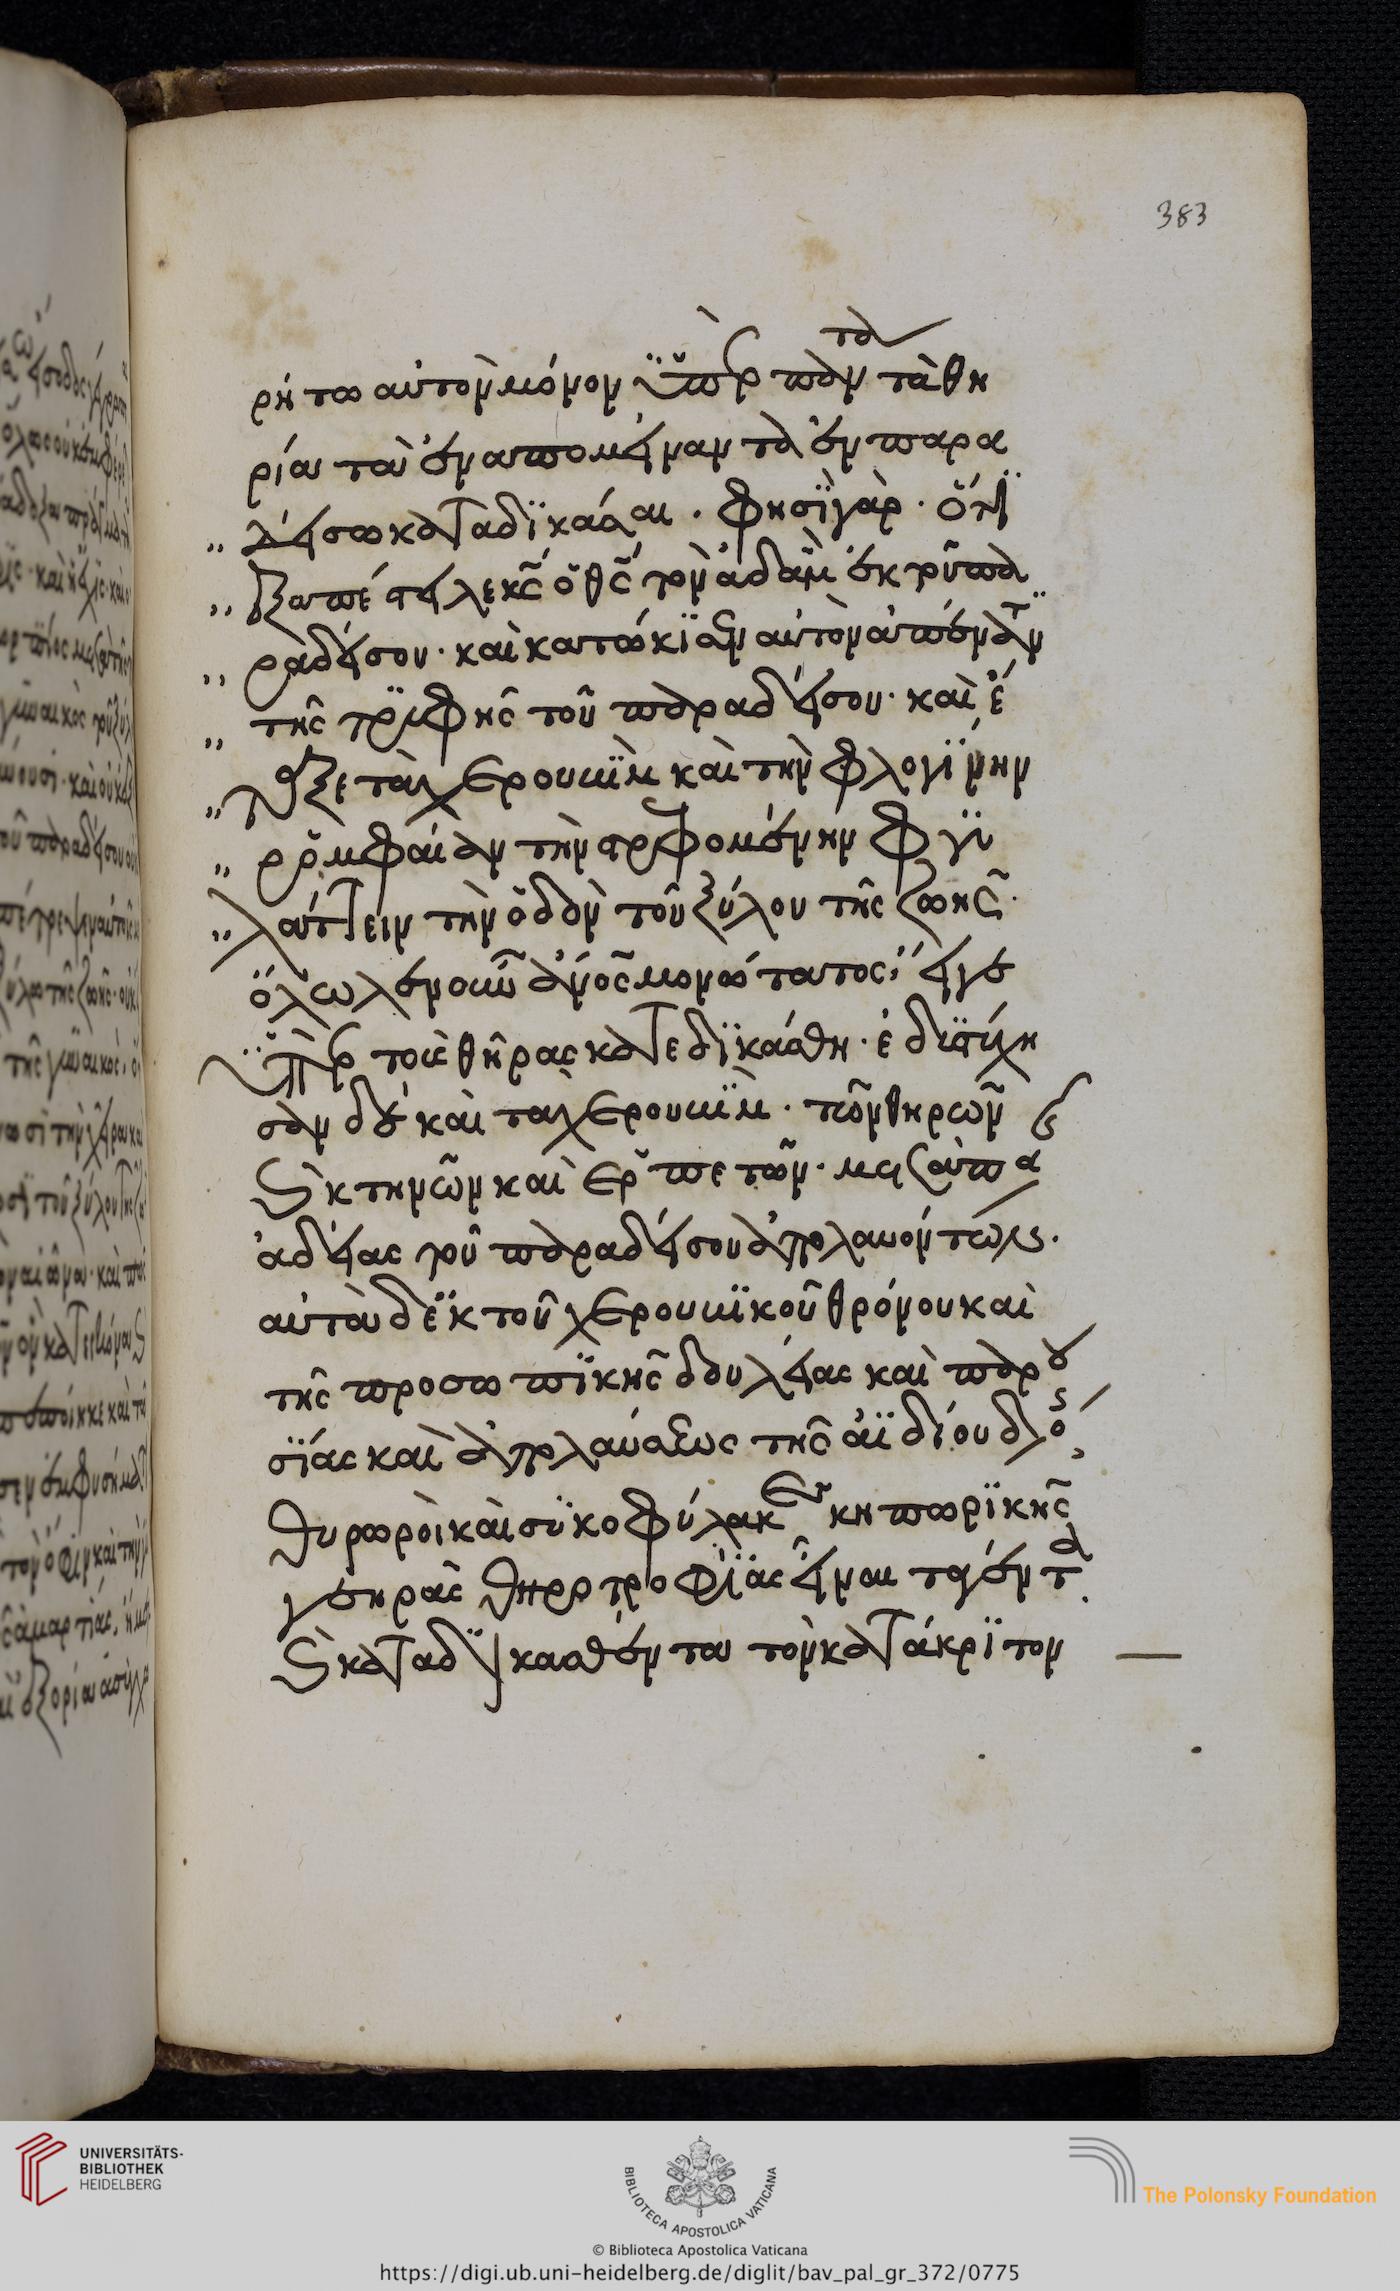 383
ρήτω αὐτὸν μόνον ὑπὲρ πάντα τὰ θη
ρία τὰ ἐναπομείναντα ἐν παρα
δείσω καταδικάσαι. φησὶ γὰρ. ὅτι
ἐξαπέστειλεν κς ὁ θς τὸν ἀδὰμ ἐκ τοῦ πα
ραδείσου. καὶ κατώκισεν αὐτὸν ἀπέναντι
τῆς τρυφῆς τοῦ παραδείσου. καὶ ἔ
ταξε τὰ χερουβὶμ καὶ τὴν φλογίνην
ρομφαίαν τὴν στρεφομένην φυ
λάττειν τὴν ὁδὸν τοῦ ξύλου τῆς ζωῆς.
τοὺς θῆρας κατεδικάσθη. ἐδιστύχη
σαν δὲ καὶ τὰ χερουβὶμ. τῶν θηρῶν
κτηνῶν καὶ ἑρπετῶν. μετὰ πά
ἀδείας τοῦ παραδείσου ἀπολαυόντων.
αὐτὰ δὲ ἐκ τοῦ χερουβικοῦ θρόνου καὶ
τῆς προσωπικῆς δουλείας καὶ παρου
σίας καὶ ἀπολαύσεως τῆς ἀϊδίου
θυρωροὶ καὶ συκοφύλακες κηπωρικῆς
γεηρᾶς θηροτροφίας εἶναι
καταδικασθέντα τὸν κατάκριτον
UNIVERSITÄTS-
BIBLIOTHEK
HEIDELBERG
BIBLIOTECA APOSTOLICA VATICANA
The Polonsky Foundation
© Biblioteca Apostolica Vaticana
https://digi.ub.uni-heidelberg.de/diglit/bav_pal_gr_372/0775